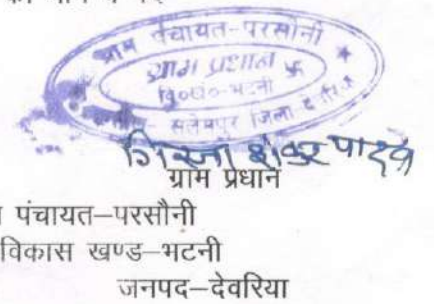 ग्राम पंचायत-परसौनी
ग्राम प्रधान
वि०ख०-भटनी
सलेमपुर जिला देवरिया
गिरजा शंकर यादव
ग्राम प्रधान
पंचायत–परसौनी
विकास खण्ड–भटनी
जनपद–देवरिया